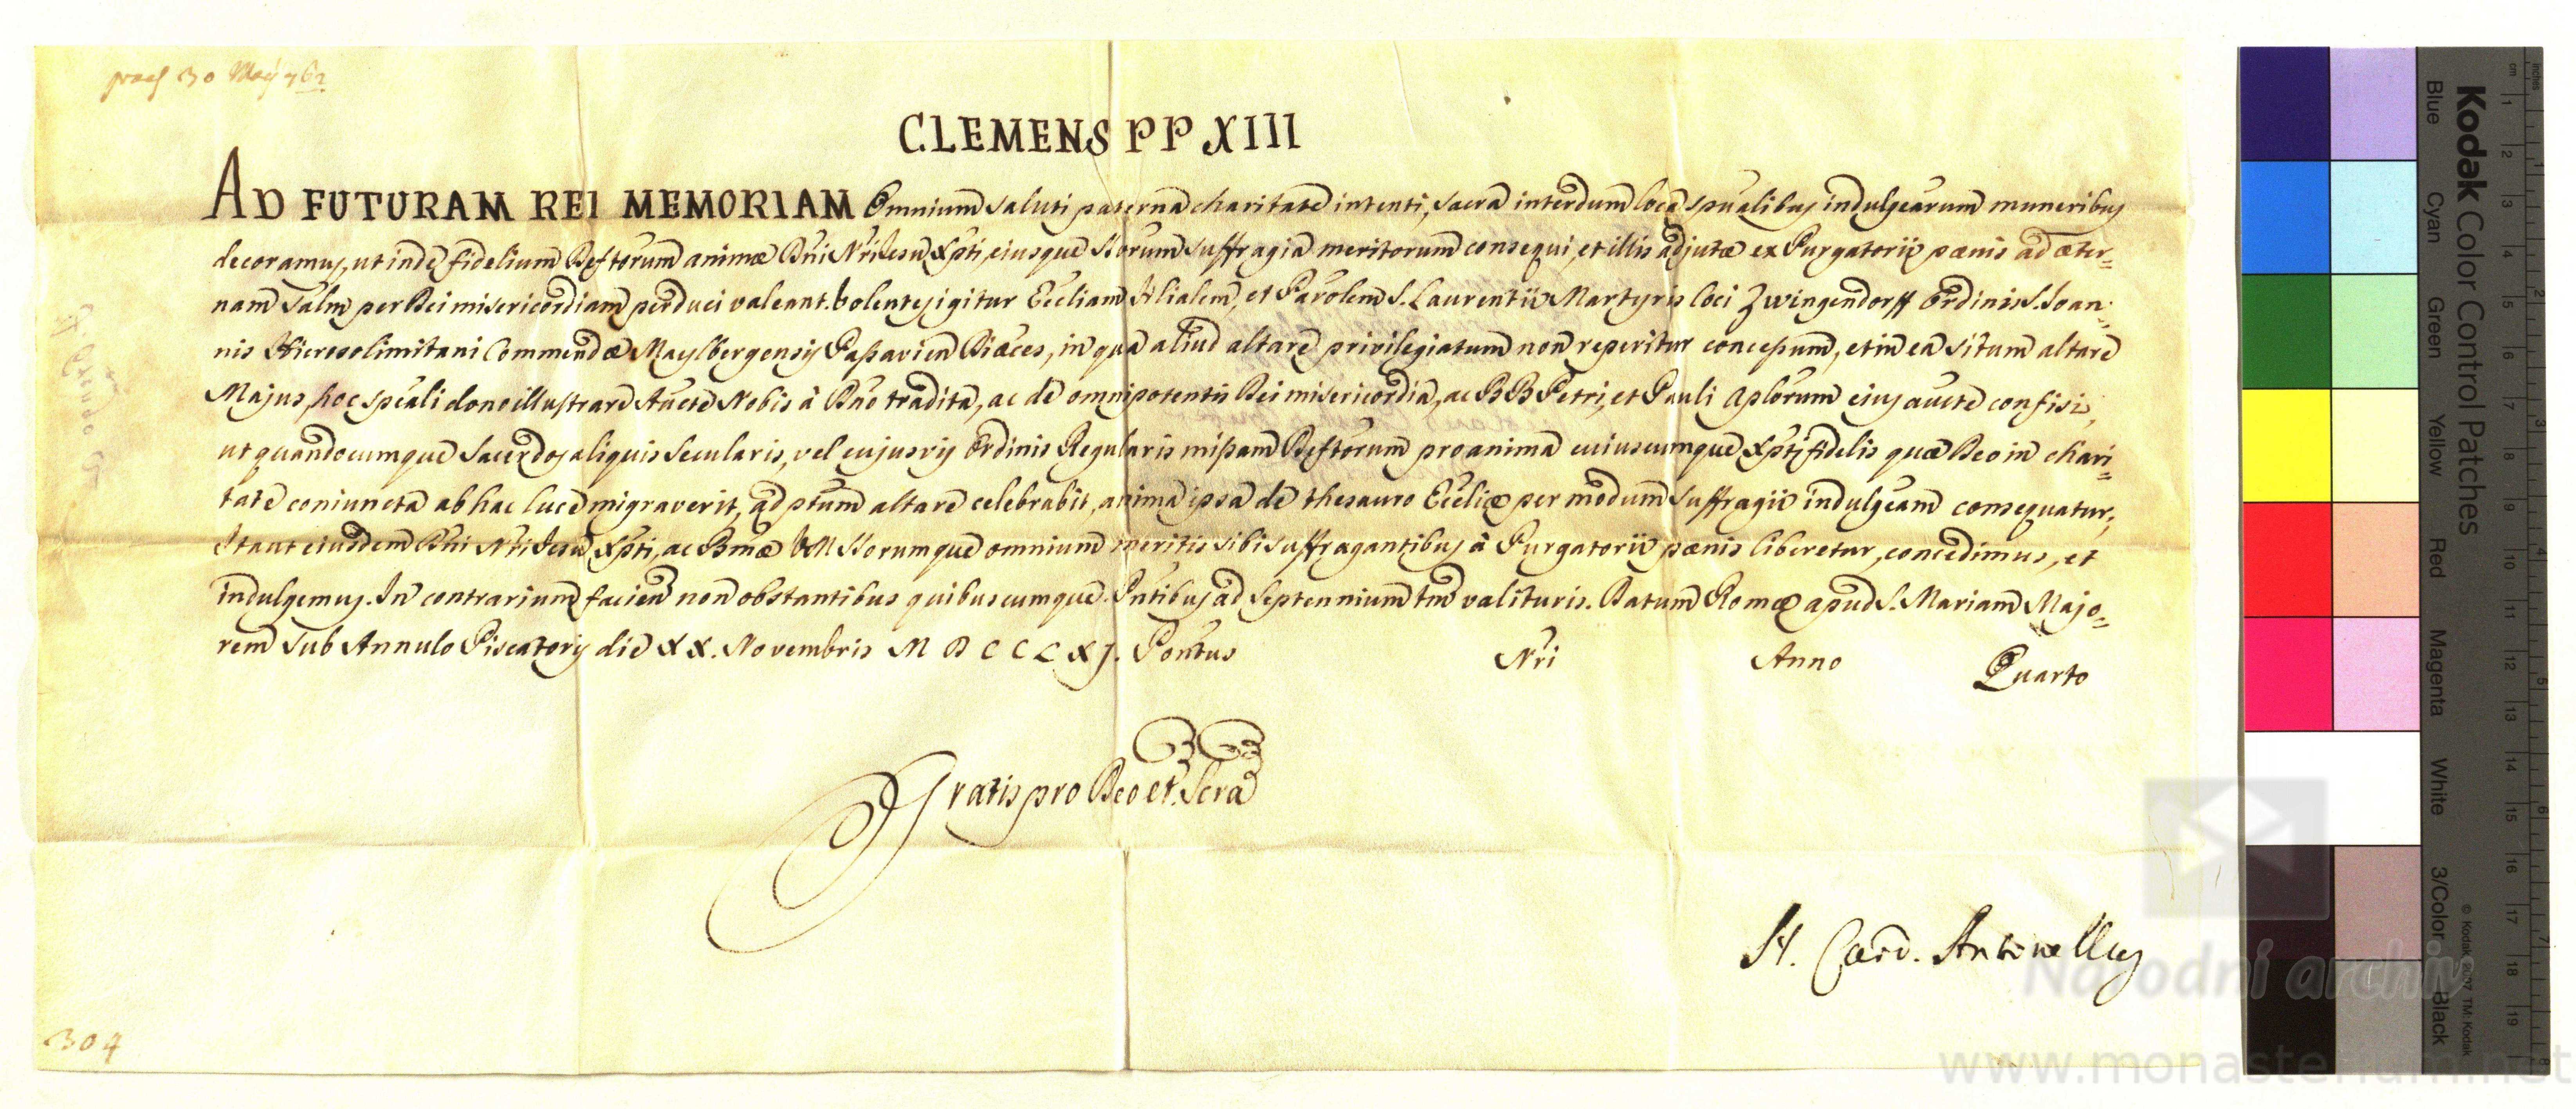 praes 30 May 762
CLEMENS PP XIII
AD FUTURAM REI MEMORIAM Omnium saluti paterna charitate intenti, sacra interdum loca spualibus indulgearum muneribus
decoramus, ut inde fidelium Deftorum animæ Dni Nri Jesu Xpti, eiusque Storum suffragia meritorum consequi, et illis adjutæ ex Purgatorii pœnis ad æter=
nam Salm per Dei misericordiam perduci valeant. Volentes igitur Eccliam Filialem, et Parolem S. Laurentii Martyris loci Zwingendorff Ordinis S. Joan=
nis Hierosolimitani Commendæ Maylbergensis Passavien Diæces, in qua aliud altare privilegiatum non reperitur concessum, et in ea situm altare
Majus, hoc speali dono illustrare Aucte Nobis à Dno tradita, ac de omnipotentis Dei misericordia, ac BB Petri, et Pauli Aplorum eius aucte confisi,
ut quandocumque Sacerdos aliquis Secularis, vel cujusvis Ordinis Regularis missam Deftorum pro anima cuiuscumque Xpti fidelis quæ Deo in chari=
tate coniuncta ab hac luce migraverit, ad ptum altare celebrabit, anima ipsa de thesauro Eccliæ per modum suffragii indulgeam consequatur,
Ita ut eiusdem Dni Nri Jesu Xpti, ac Bmæ VM Storumque omnium meritis sibi suffragantibus à Purgatorii pœnis liberetur, concedimus, et
indulgemus. In contrarium facien non obstantibus quibuscumque. Pntibus ad Septennium tm valituris. Datum Romæ apud S. Mariam Majo=
rem sub Annulo Piscatoris die XX. Novembris MDCCLXJ. Pontus Nri Anno Quarto
Gratis pro Deo et Scra
N. Card. Antonellus
304
Kodak Color Control Patches
Blue Cyan Green Yellow Red Magenta White 3/Color Black
© Kodak, 2007 TM: Kodak
cm 1 2 3 4 5 6 7 8 9 10 11 12 13 14 15 16 17 18 19
inches 1 2 3 4 5 6 7 8
Národní archiv
www.monasterium.net